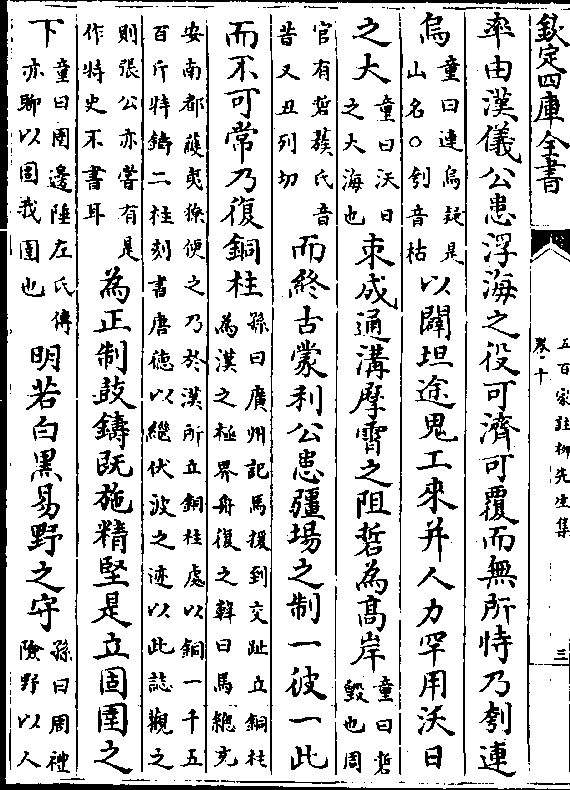 欽定四庫全書
五百家註柳先生集
卷十
三
率由漢儀公患浮海之役可濟可覆而無所恃乃刳連
烏童曰連烏疑是山名○刳音枯以闢坦途鬼工來并人力罕用沃日
之大童曰沃日之大海也束成通溝摩霄之阻硩為髙岸童曰硩毀也周
官有硩蔟氏音昔又丑列切而終古蒙利公患疆場之制一彼一此
而不可常乃復銅柱孫曰廣州記馬援到交趾立銅柱為漢之極界舟復之韓曰馬總充
安南都護夷獠便之乃於漢所立銅柱處以銅一千五百斤特鑄二柱刻書唐德以繼伏波之迹以此誌觀之
則張公亦嘗有是作特史不書耳為正制鼓鑄既施精堅是立固圉之
下童曰圉邊陲左氏傳亦聊以固我圉也明若白黒易野之守孫曰周禮險野以人